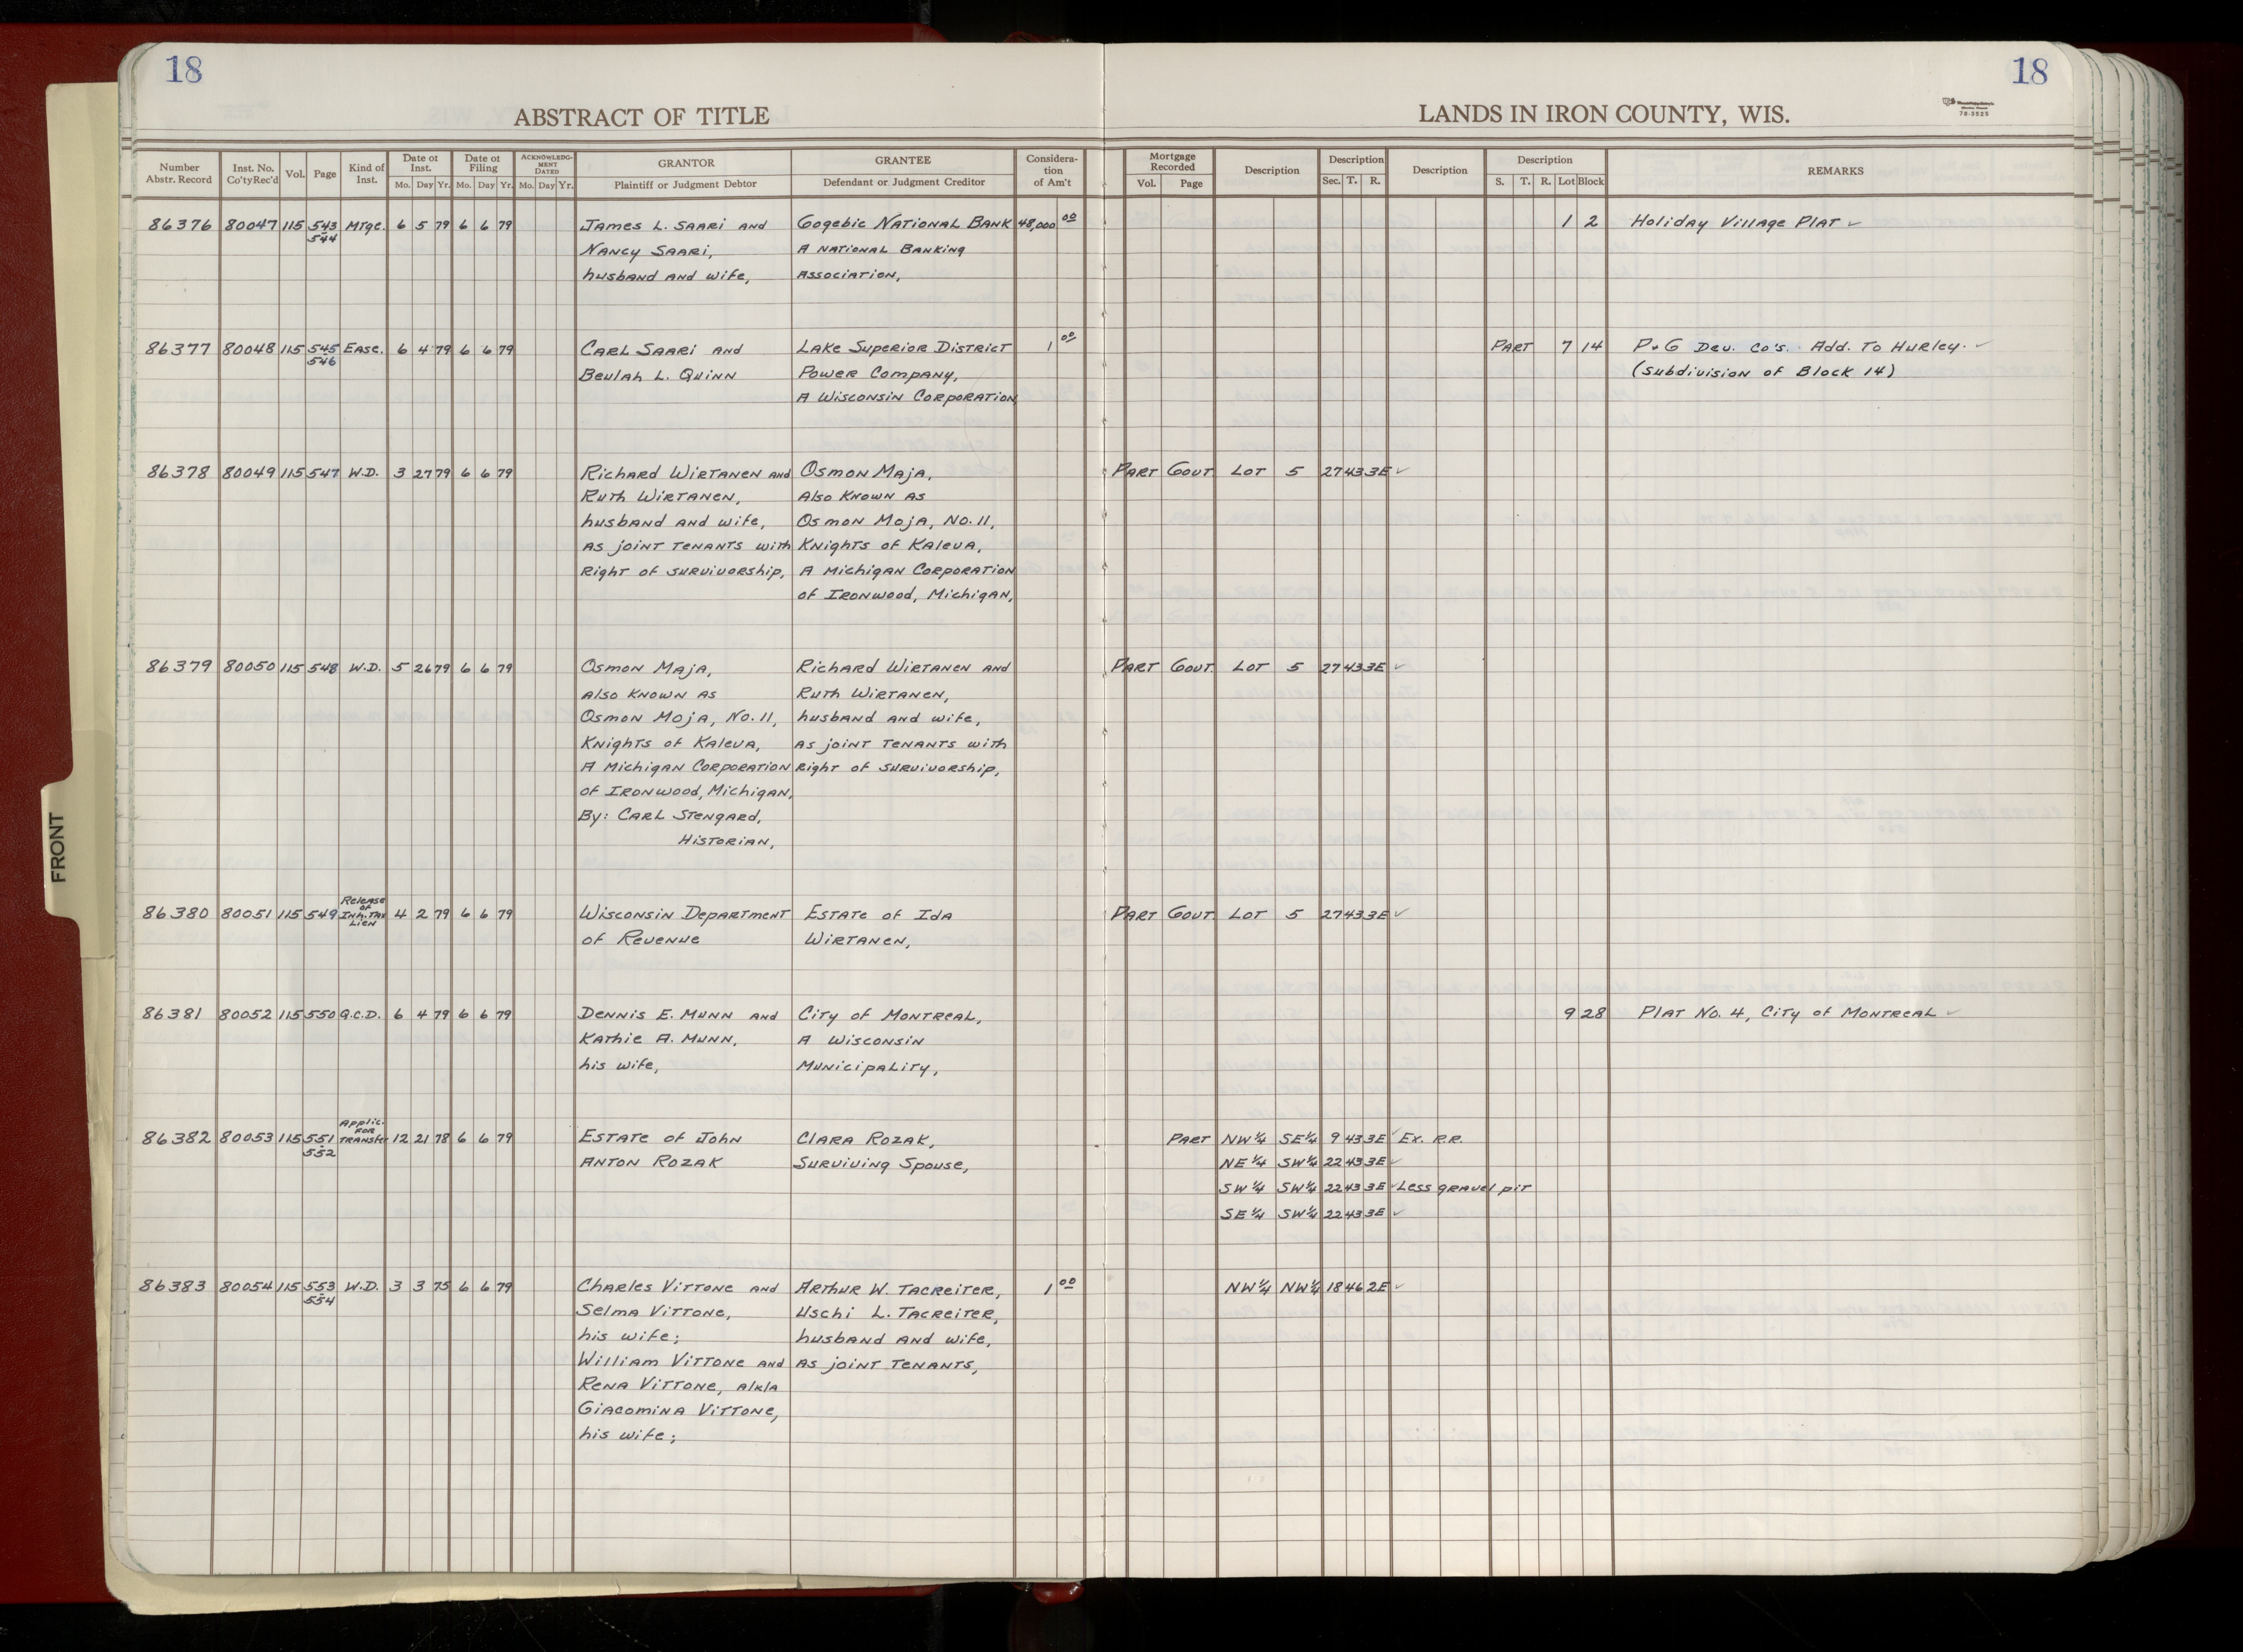 18
18
ABSTRACT OF TITLE
LANDS IN IRON COUNTY, WIS.
78-3525
Number Abstr. Record
Inst. No. Co'ty Rec'd
Vol.
Page
Kind of Inst.
Date of Inst. Mo. Day Yr.
Date of Filing Mo. Day Yr.
ACKNOWLEDGMENT DATED Mo. Day Yr.
GRANTOR Plaintiff or Judgment Debtor
GRANTEE Defendant or Judgment Creditor
Consideration of Am't
Mortgage Recorded Vol. Page
Description
Description Sec. T. R.
Description
Description S. T. R. Lot Block
REMARKS
86376 80047 115 543 Mtge. 6 5 79 6 6 79 James L. Saari and Gogebic National Bank 48,000 00 1 2 Holiday Village Plat ✓
544 Nancy Saari, A National Banking
husband and wife, Association,
86377 80048 115 545 Ease. 6 4 79 6 6 79 Carl Saari and Lake Superior District 1 00 Part 7 14 P&G Dev. Co's. Add. To Hurley. ✓
546 Beulah L. Quinn Power Company, (Subdivision of Block 14)
A Wisconsin Corporation,
86378 80049 115 547 W.D. 3 27 79 6 6 79 Richard Wirtanen and Osmon Maja, Part Govt. Lot 5 27 43 3E ✓
Ruth Wirtanen, Also Known As
husband and wife, Osmon Moja, No. 11,
As joint tenants with Knights of Kaleva,
Right of survivorship, A Michigan Corporation
of Ironwood, Michigan,
86379 80050 115 548 W.D. 5 26 79 6 6 79 Osmon Maja, Richard Wirtanen and Part Govt. Lot 5 27 43 3E ✓
Also Known As Ruth Wirtanen,
Osmon Moja, No. 11, husband and wife,
Knights of Kaleva, As joint tenants with
A Michigan Corporation Right of survivorship,
of Ironwood, Michigan,
By: Carl Stengard,
Historian,
FRONT
86380 80051 115 549 Release of Inh. Tax Lien 4 2 79 6 6 79 Wisconsin Department Estate of Ida Part Govt. Lot 5 27 43 3E ✓
of Revenue Wirtanen,
86381 80052 115 550 Q.C.D. 6 4 79 6 6 79 Dennis E. Munn and City of Montreal, 9 28 Plat No. 4, City of Montreal ✓
Kathie A. Munn, A Wisconsin
his wife, Municipality,
86382 80053 115 551 Applic. for Transfer 12 21 78 6 6 79 Estate of John Clara Rozak, Part NW¼ SE¼ 9 43 3E ✓ Ex. R.R.
552 Anton Rozak Surviving Spouse, NE¼ SW¼ 22 43 3E ✓
SW¼ SW¼ 22 43 3E ✓ Less gravel pit
SE¼ SW¼ 22 43 3E ✓
86383 80054 115 553 W.D. 3 3 75 6 6 79 Charles Vittone and Arthur W. Tacreiter, 1 00 NW¼ NW¼ 18 46 2E ✓
554 Selma Vittone, Uschi L. Tacreiter,
his wife; husband and wife,
William Vittone and As joint tenants,
Rena Vittone, a/k/a
Giacomina Vittone,
his wife;